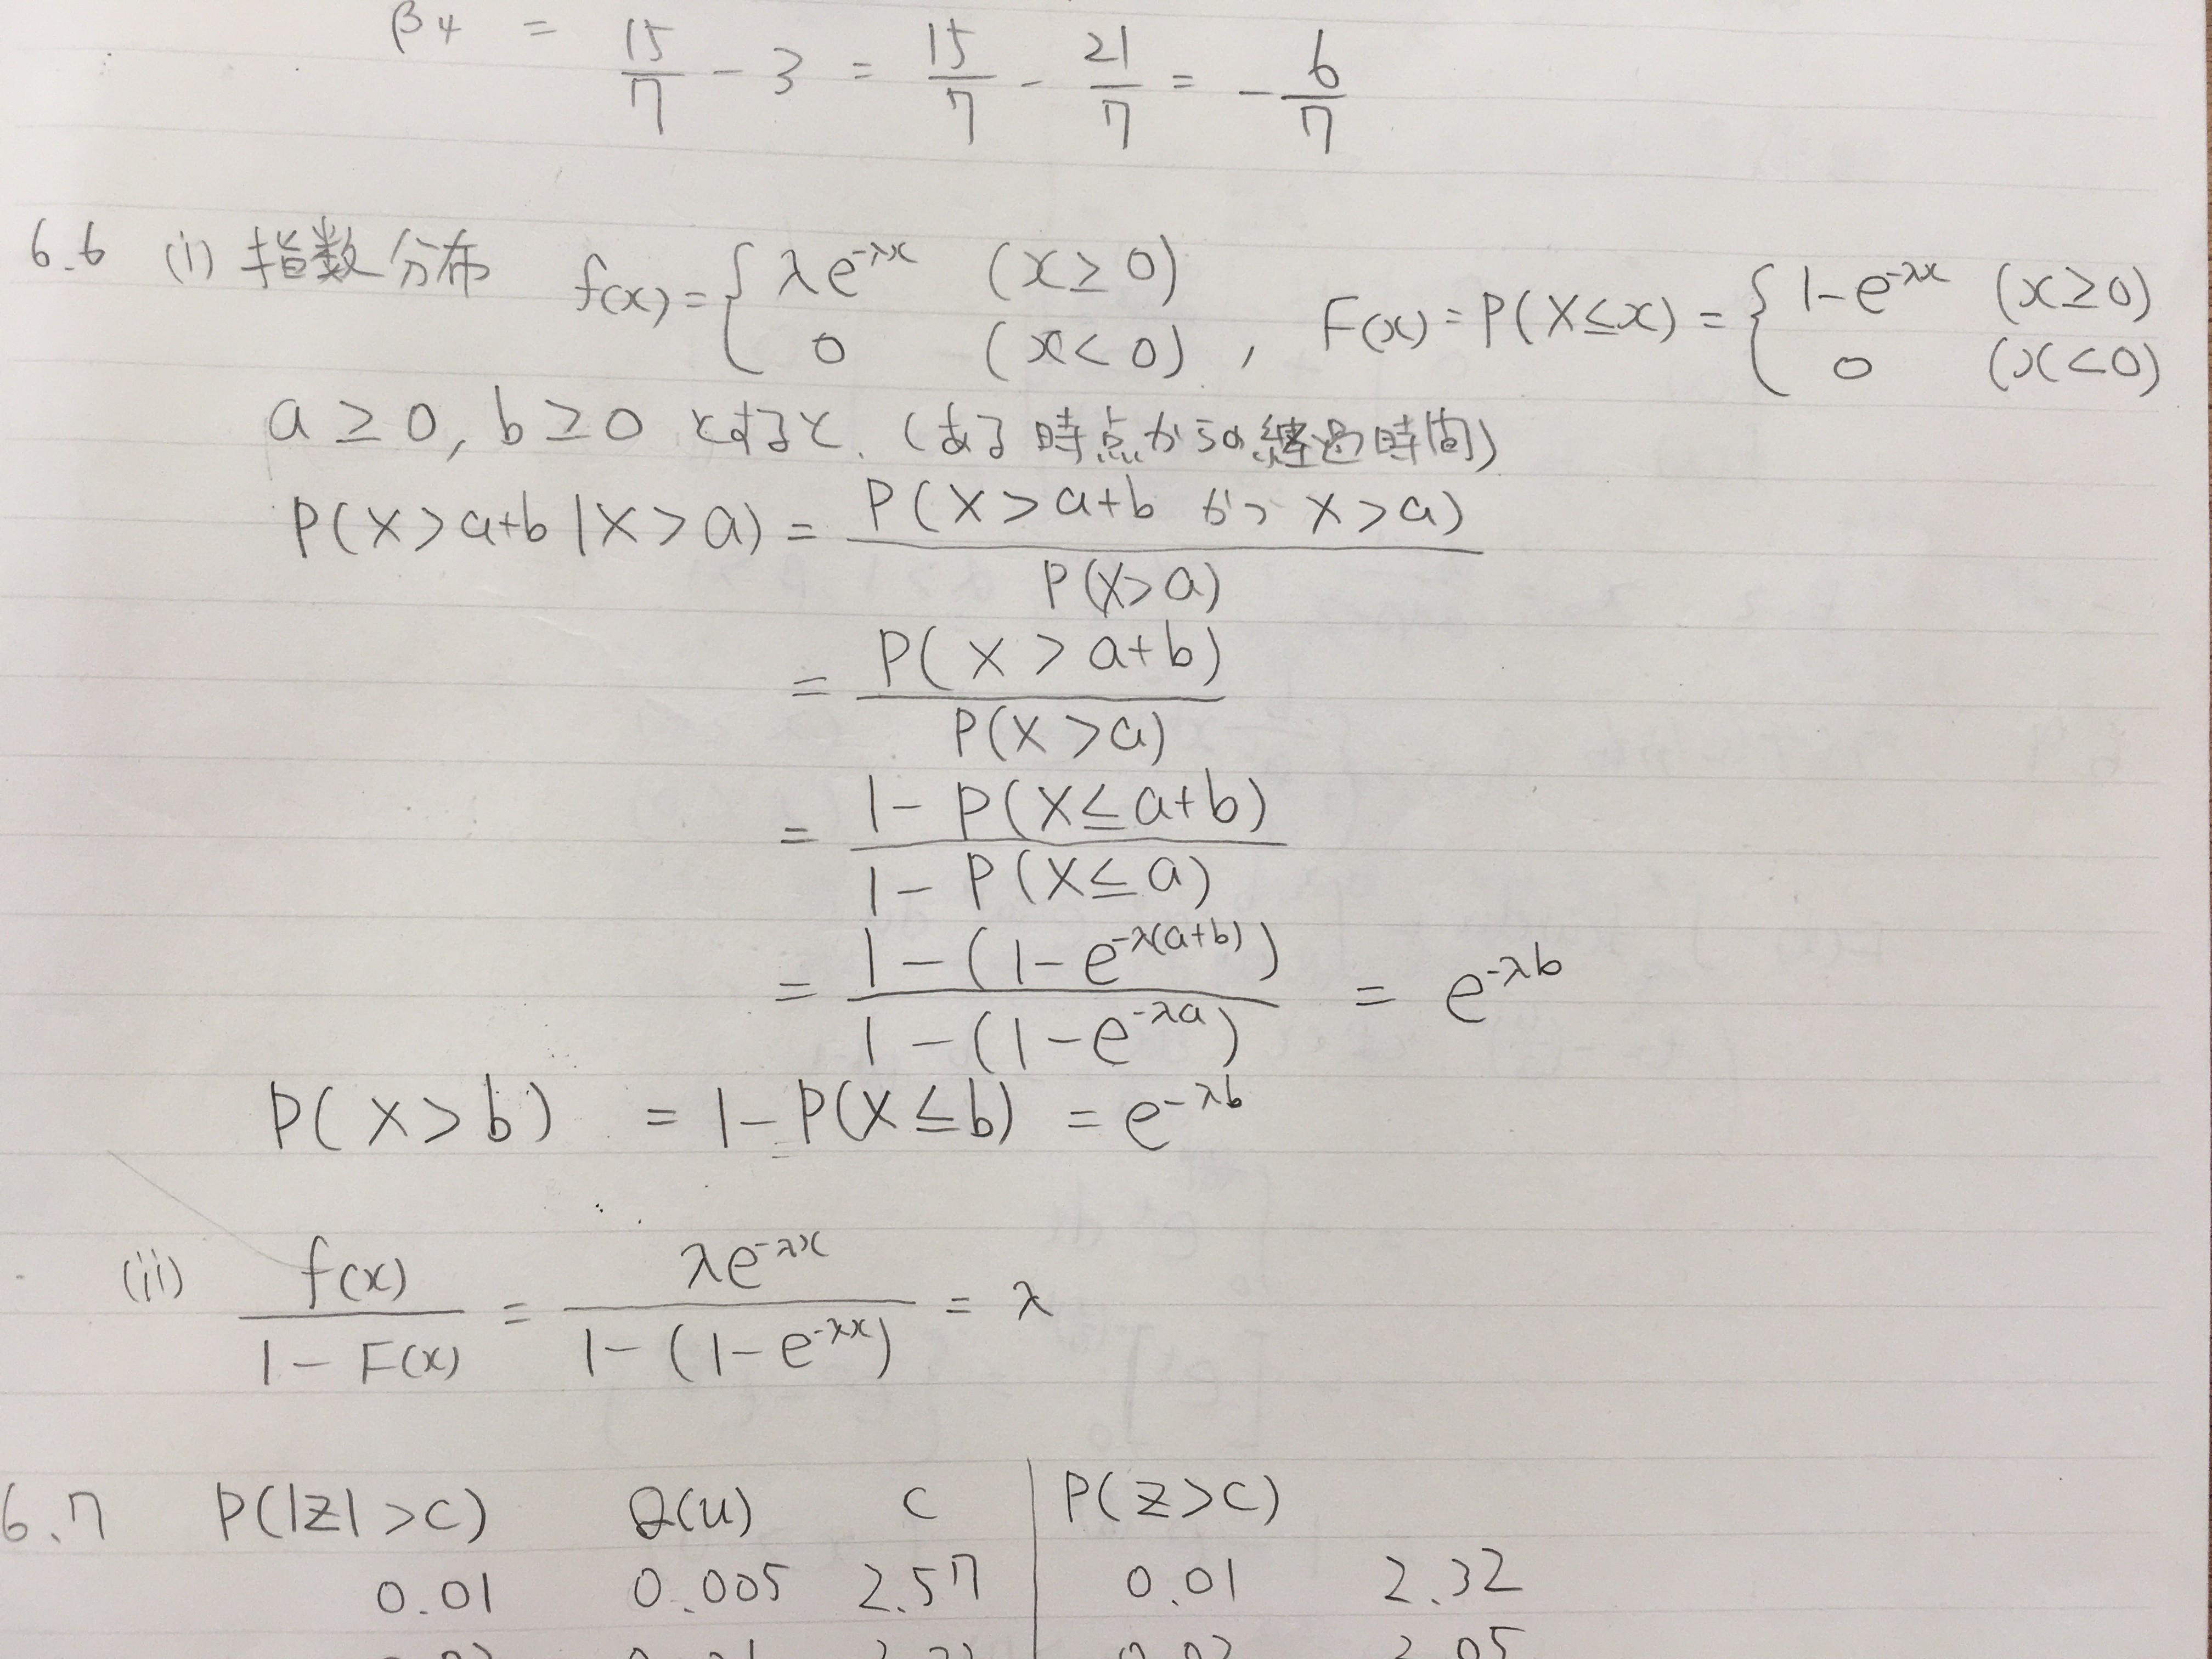 β4 = 15/7 - 3 = 15/7 - 21/7 = -6/7
6.6 (i) 指数分布 f(x) = { λe^{-λx} (x≥0) , F(x) = P(X≤x) = { 1-e^{-λx} (x≥0)
0 (x<0) 0 (x<0)
a≥0, b≥0 とすると. (ある時点からの経過時間)
P(X>a+b|X>a) = P(X>a+b かつ X>a) / P(X>a)
= P(X>a+b) / P(X>a)
= 1-P(X≤a+b) / 1-P(X≤a)
= 1-(1-e^{-λ(a+b)}) / 1-(1-e^{-λa}) = e^{-λb}
P(X>b) = 1-P(X≤b) = e^{-λb}
(ii) f(x) / 1-F(x) = λe^{-λx} / 1-(1-e^{-λx}) = λ
6.7 P(|Z|>c) Q(u) c P(Z>c)
0.01 0.005 2.57 0.01 2.32